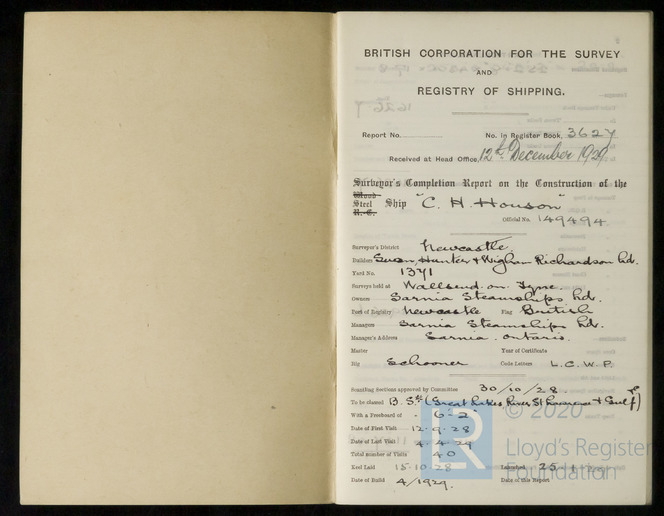 BRITISH CORPORATION FOR THE SURVEY
AND
REGISTRY OF SHIPPING.
Report No. No. in Register Book, 3627
Received at Head Office, 12th December 1929
Surveyor's Completion Report on the Construction of the
Wood
Steel Ship "C. H. Houson"
R.-C.
Official No. 149494
Surveyor's District Newcastle.
Builders Swan, Hunter & Wigham Richardson Ltd.
Yard No. 1371
Surveys held at Wallsend-on-Tyne.
Owners Sarnia Steamships Ltd.
Port of Registry Newcastle Flag British
Managers Sarnia Steamships Ltd.
Manager's Address Sarnia. Ontario.
Master Year of Certificate
Rig Schooner Code Letters L.C.W.P.
Scantling Sections approved by Committee 30/10/28.
To be classed B.S.* (Great Lakes, River St Lawrence & Gulf)
With a Freeboard of 6'-2"
Date of First Visit 12-9-28
Date of Last Visit 4-4-29
Total number of Visits 40
Keel Laid 15-10-28 Launched 25-1-
Date of Build 4/1929. Date of this Report
© 2020
Lloyd's Register
Foundation